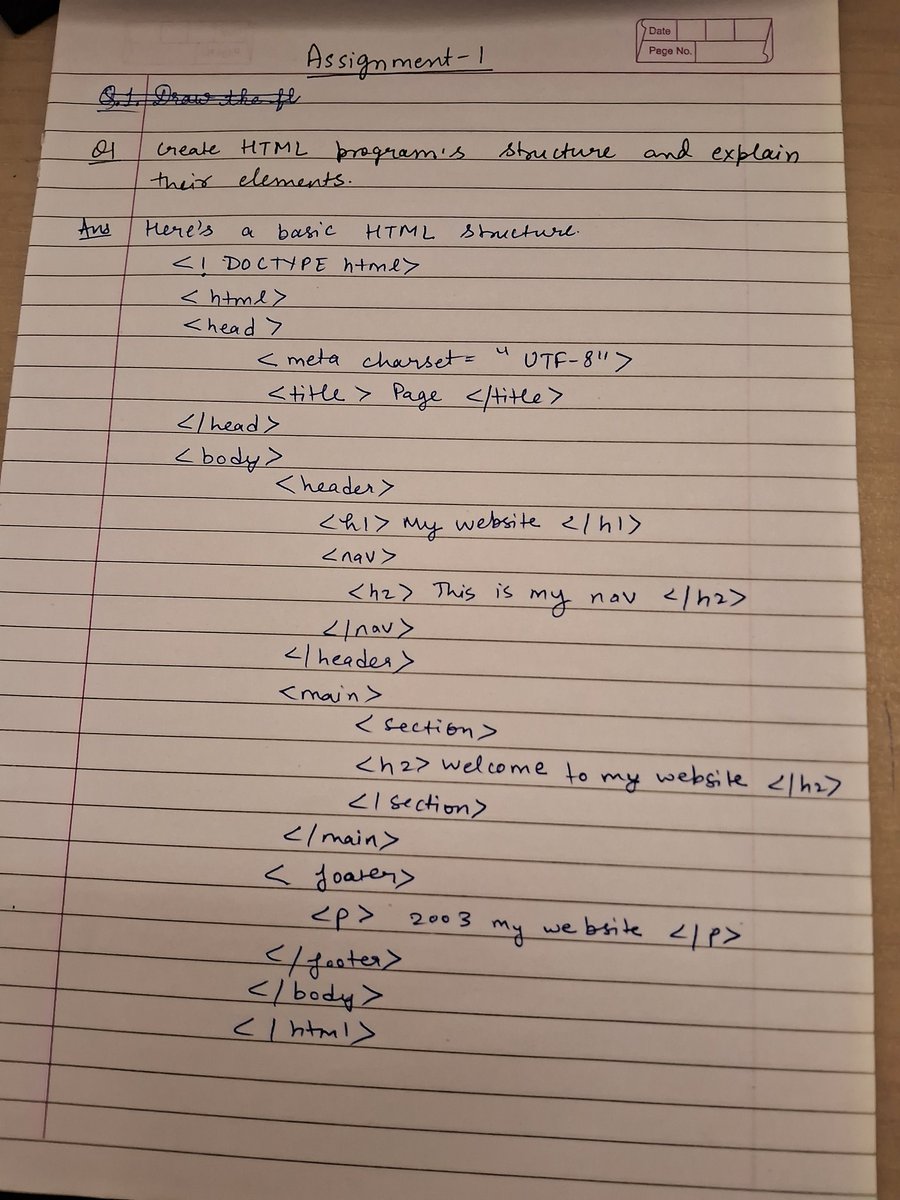 Date
Page No.
Assignment-1
Q.1. Draw the fl
Q1 Create HTML program's structure and explain
their elements.
Ans Here's a basic HTML structure.
<! DOCTYPE html>
<html>
<head>
<meta charset= "UTF-8">
<title> Page </title>
</head>
<body>
<header>
<h1> My website </h1>
<nav>
<h2> This is my nav </h2>
</nav>
</header>
<main>
<section>
<h2> welcome to my website </h2>
</section>
</main>
<foater>
<p> 2003 my website </p>
</footer>
</body>
</html>